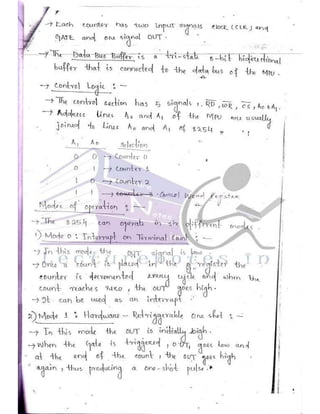 → Each counter has two input signals clock (CLK) and
GATE and one signal OUT.
→ The Data-Bus Buffer is a tri-state 8-bit bidirectional
buffer that is connected to the data bus of the MPU.
→ Control Logic : —
→ The control section has 5 signals : RD, WR, CS, A0 & A1.
→ Address lines A0 and A1 of the MPU are usually
joined to lines A0 and A1 of 8254.
A1 A0 Selection
0 0 → Counter 0
0 1 → Counter 1
1 0 → Counter 2
1 1 → Control Word Register
Modes of operation : —
→ The 8254 can operate in six different modes.
1) Mode 0 : Interrupt on Terminal Count : —
→ In this mode, the OUT signal is low.
→ Once a count is placed in the register the
counter is decremented every cycle and when the
count reaches zero, the OUT goes high.
→ It can be used as an interrupt.
2) Mode 1 : Hardware – Retriggerable One shot : —
→ In this mode the OUT is initially high.
→ When the Gate is triggered, OUT goes low and
at the end of the count, the OUT goes high
again, thus producing a one-shot pulse.